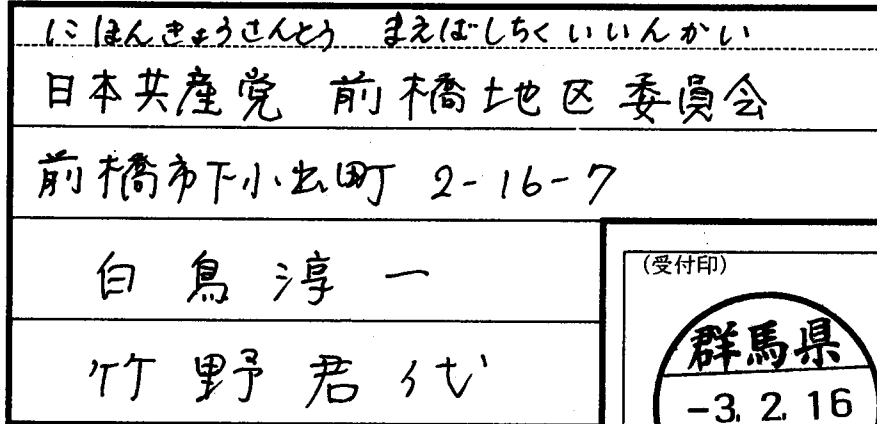 にほんきょうさんとう まえばしちくいいんかい
日本共産党 前橋地区委員会
前橋市下小出町 2-16-7
白鳥淳一
竹野君代
(受付印)
群馬県
-3. 2. 16